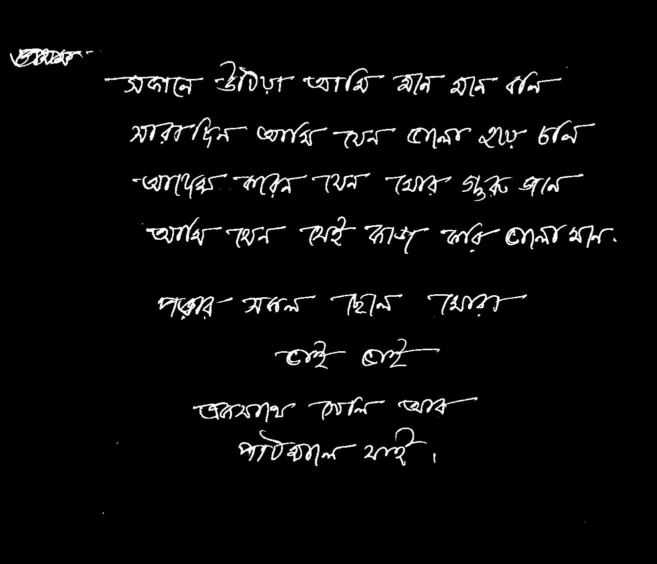 সকালে উঠিয়া আমি মনে মনে বলি
সারাদিন আমি যেন ভালো হয়ে চলি
আদেশ করেন যেন মোর গুরু জনে
আমি যেন সেই কাজ করি ভালো মনে.
পাড়ার সকল ছেলে মোরা
ভাই ভাই
একসাথে খেলি আর
পাঠশালে যাই।